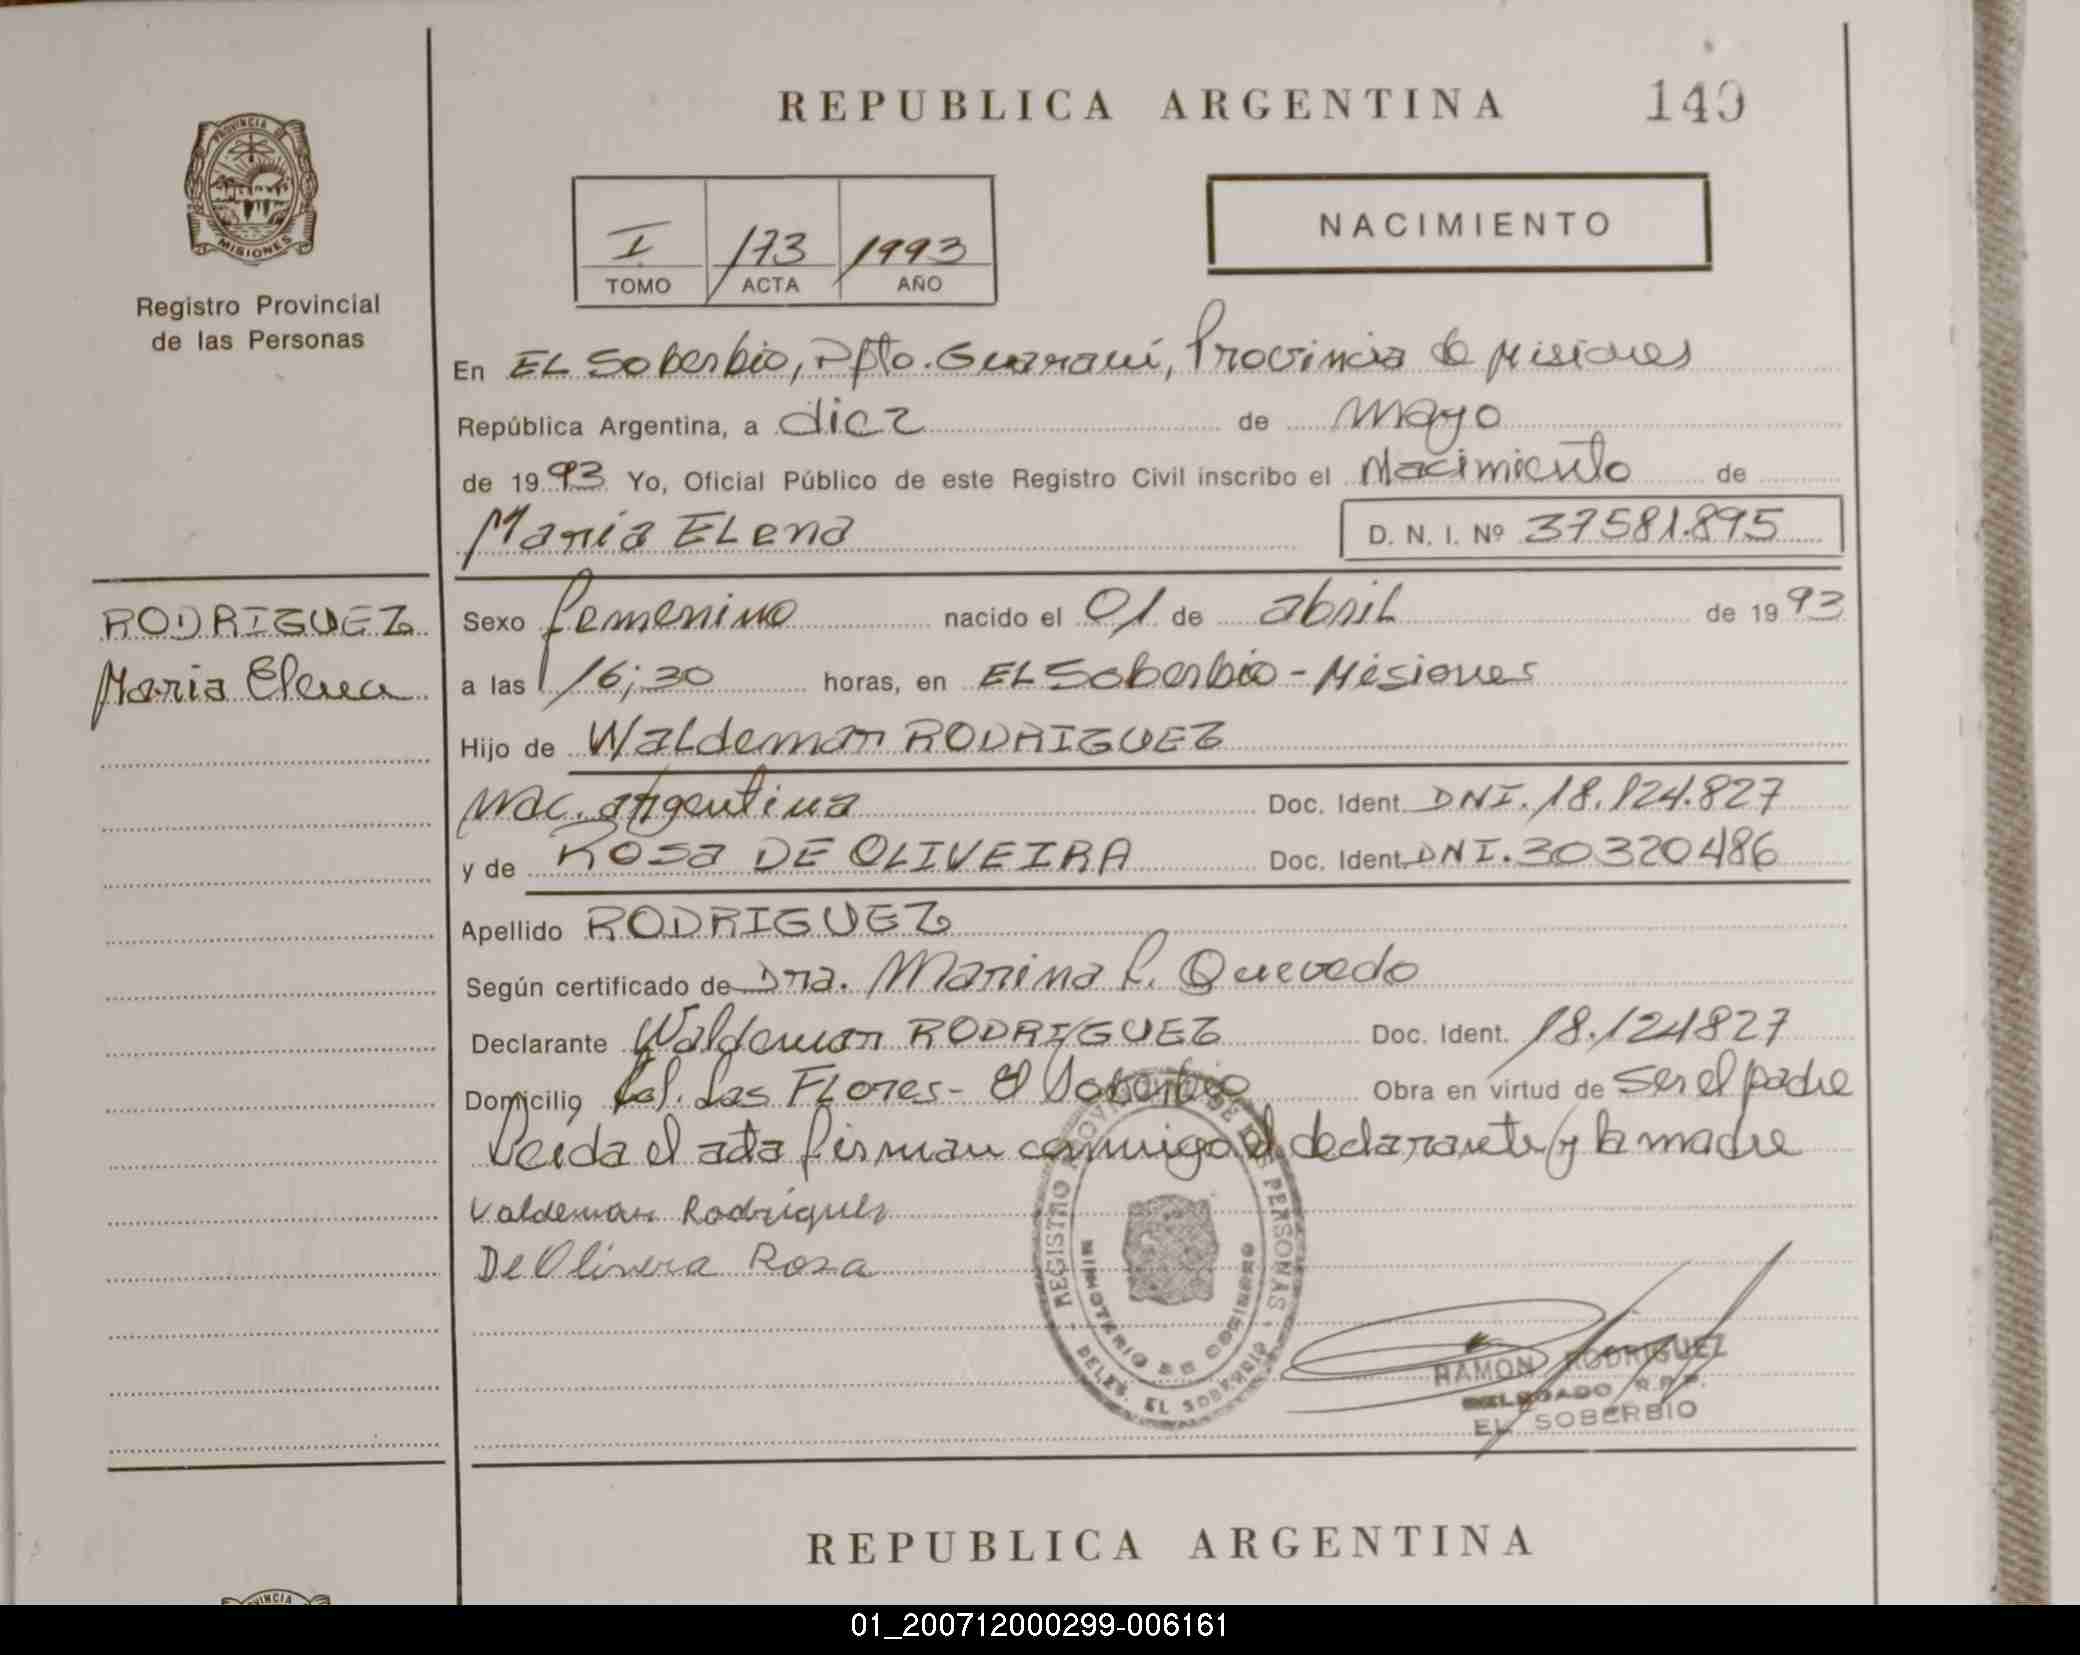 REPUBLICA ARGENTINA
140
PROVINCIA DE
MISIONES
Registro Provincial
de las Personas
I 173 1993
TOMO ACTA AÑO
NACIMIENTO
En EL Soberbio, Dpto. Guaraní, Provincia de Misiones
República Argentina, a diez de mayo
de 1993 Yo, Oficial Público de este Registro Civil inscribo el Nacimiento de
Maria ELena D. N. I. Nº 37581.895
RODRIGUEZ
Maria Elena
Sexo femenino nacido el 01 de abril de 1993
a las 16;30 horas, en EL Soberbio - Misiones
Hijo de Waldemar RODRIGUEZ
Nac. argentina Doc. Ident. DNI. 18.124.827
y de Rosa DE OLIVEIRA Doc. Ident. DNI. 30320486
Apellido RODRIGUEZ
Según certificado de Dra. Marina R. Quevedo
Declarante Waldemar RODRIGUEZ Doc. Ident. 18.124827
Domicilio Col. Las FLores - El Soberbio Obra en virtud de ser el padre
Leida el acta firman conmigo el declarante y la madre
Valdemar Rodriguez
De Oliveira Rosa
REGISTRO PROVINCIAL DE LAS PERSONAS
DELEG. EL SOBERBIO
RAMON RODRIGUEZ
DELEGADO R.P.P.
EL SOBERBIO
REPUBLICA ARGENTINA
01_200712000299-006161